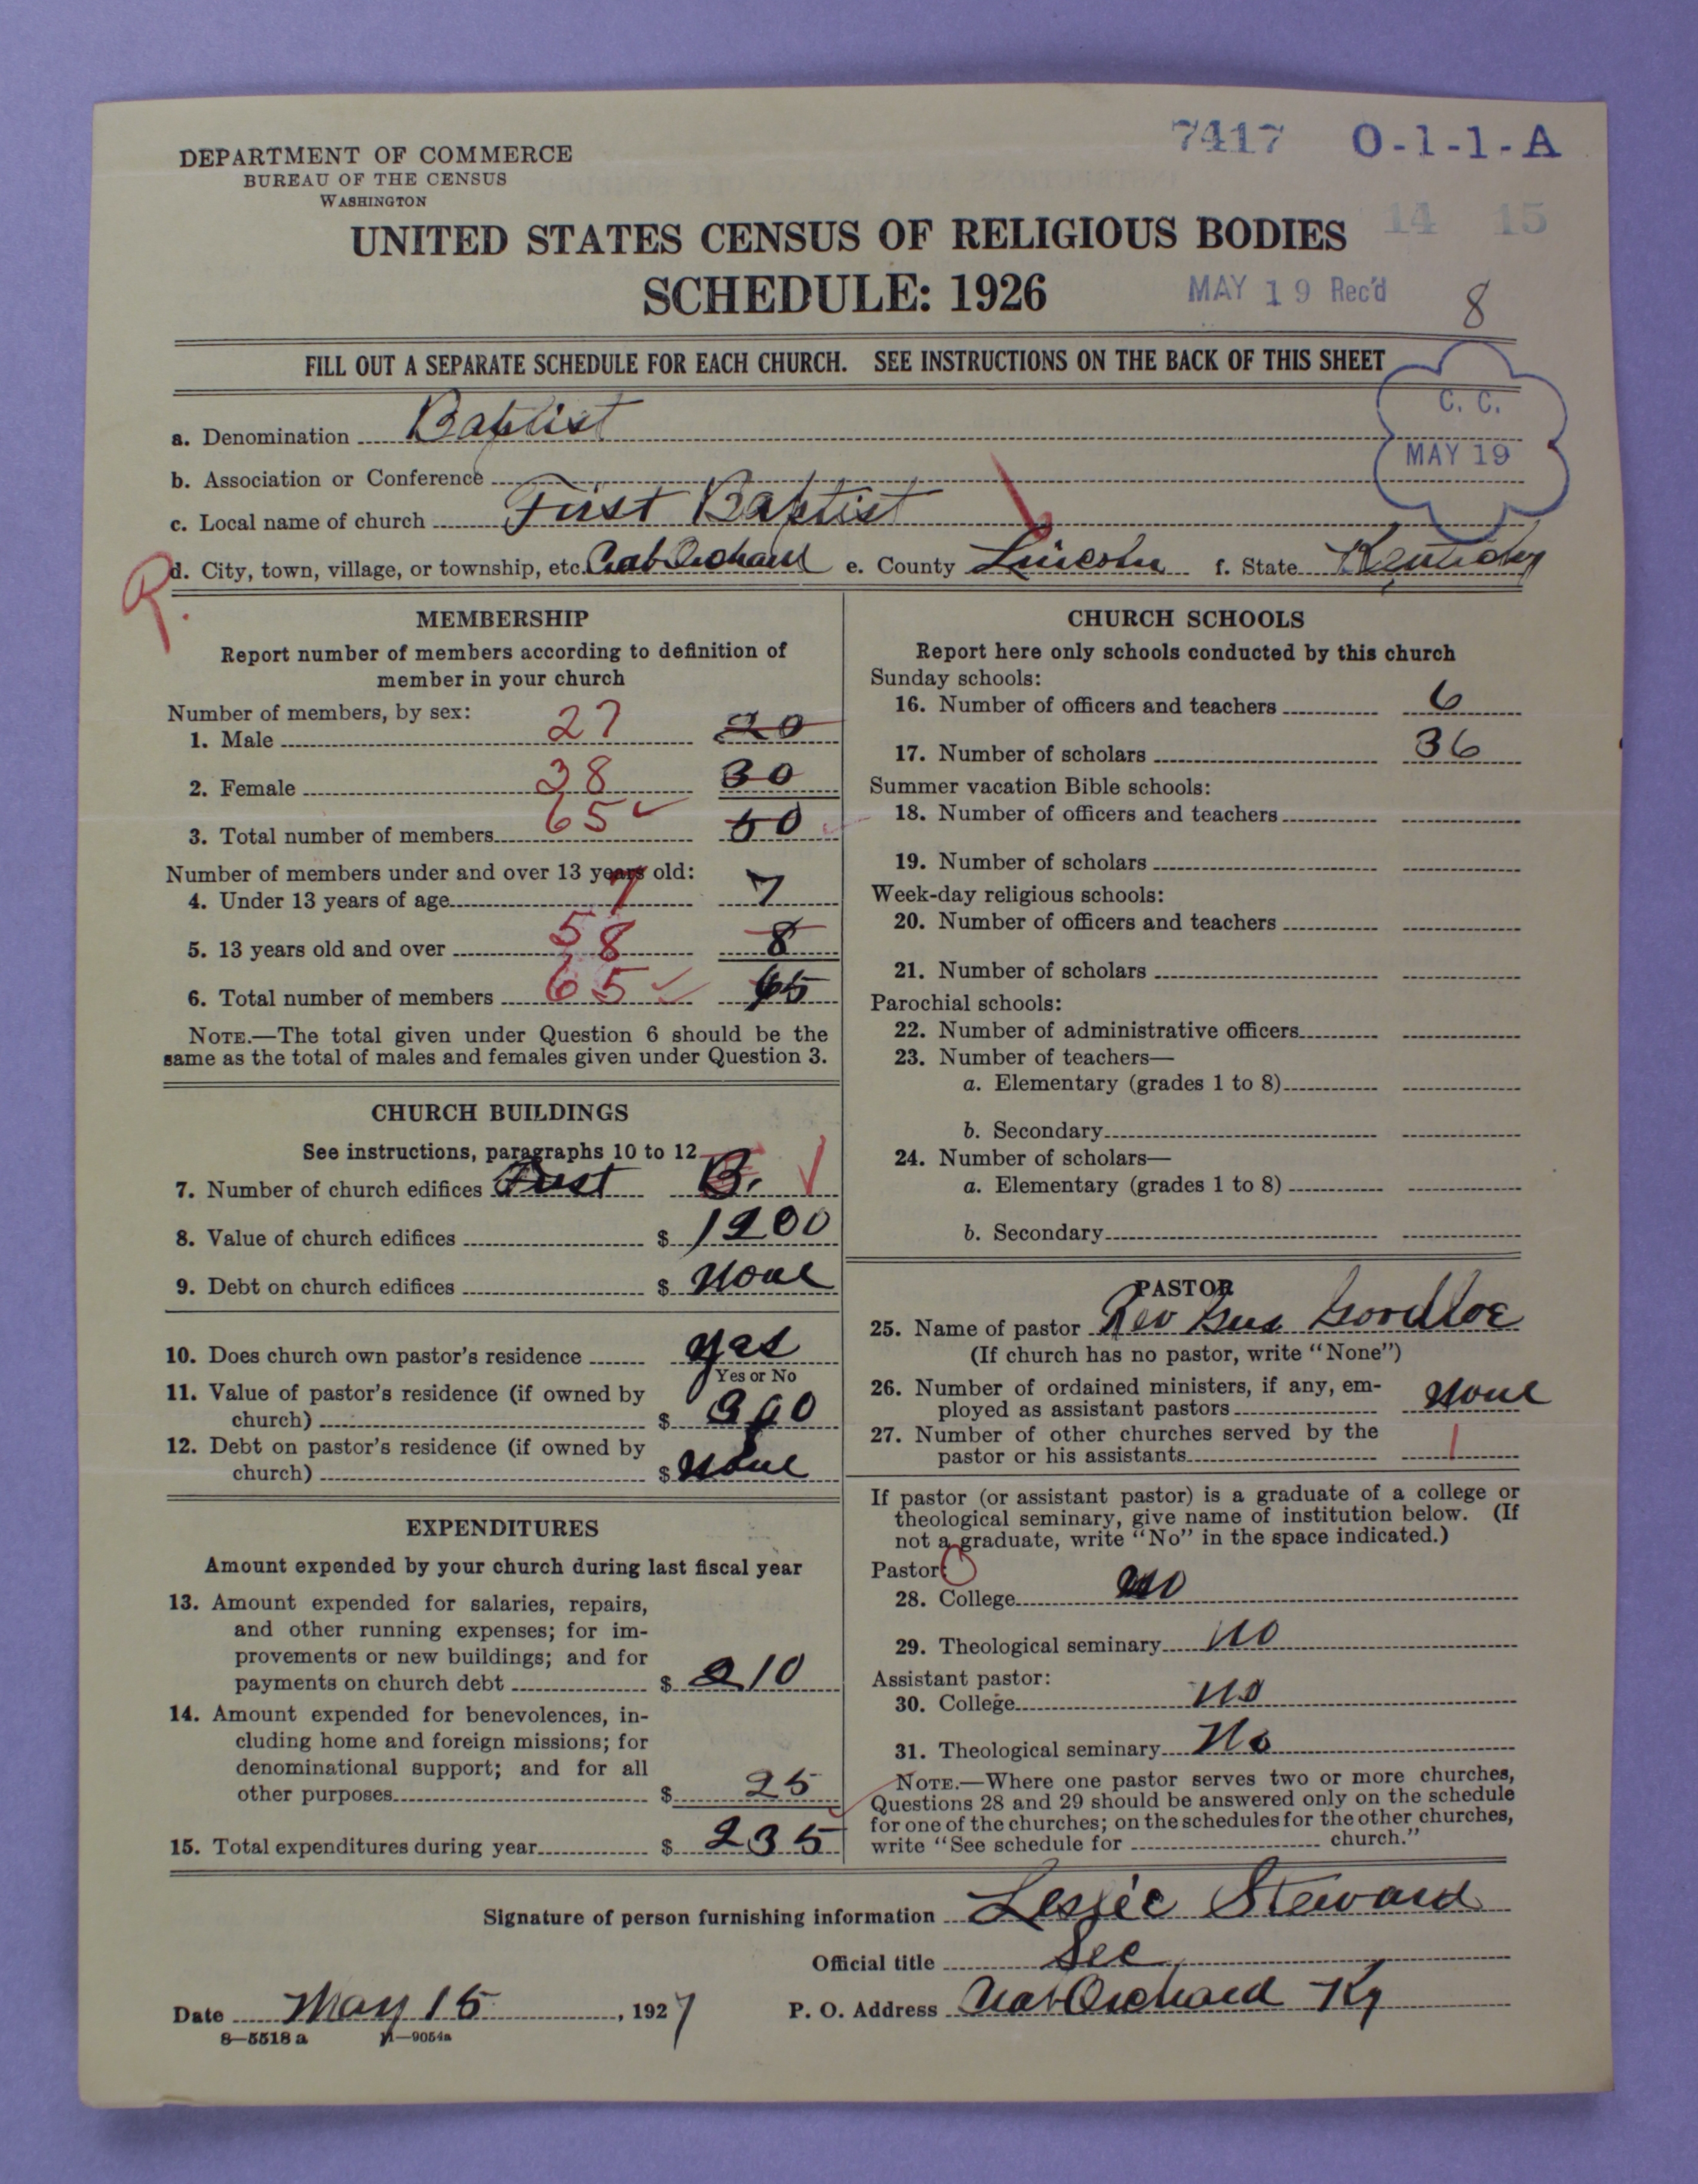 7417 O-1-1-A
DEPARTMENT OF COMMERCE
BUREAU OF THE CENSUS
WASHINGTON
14 15
UNITED STATES CENSUS OF RELIGIOUS BODIES
SCHEDULE: 1926
MAY 19 Rec'd
8
FILL OUT A SEPARATE SCHEDULE FOR EACH CHURCH. SEE INSTRUCTIONS ON THE BACK OF THIS SHEET
C. C.
MAY 19
a. Denomination Baptist
b. Association or Conference
c. Local name of church First Baptist
R.
d. City, town, village, or township, etc. Crab Orchard e. County Lincoln f. State Kentucky
MEMBERSHIP
Report number of members according to definition of
member in your church
Number of members, by sex:
1. Male 27 20
2. Female 38 30
3. Total number of members 65 50
Number of members under and over 13 years old:
4. Under 13 years of age 7 7
5. 13 years old and over 58 8
6. Total number of members 65 65
NOTE.—The total given under Question 6 should be the
same as the total of males and females given under Question 3.
CHURCH BUILDINGS
See instructions, paragraphs 10 to 12
7. Number of church edifices First B.
8. Value of church edifices $ 1200
9. Debt on church edifices $ None
10. Does church own pastor's residence yes
Yes or No
11. Value of pastor's residence (if owned by
church) $
12. Debt on pastor's residence (if owned by
church) $ None
EXPENDITURES
Amount expended by your church during last fiscal year
13. Amount expended for salaries, repairs,
and other running expenses; for im-
provements or new buildings; and for
payments on church debt $ 210
14. Amount expended for benevolences, in-
cluding home and foreign missions; for
denominational support; and for all
other purposes $ 25
15. Total expenditures during year $ 235
CHURCH SCHOOLS
Report here only schools conducted by this church
Sunday schools:
16. Number of officers and teachers 6
17. Number of scholars 36
Summer vacation Bible schools:
18. Number of officers and teachers
19. Number of scholars
Week-day religious schools:
20. Number of officers and teachers
21. Number of scholars
Parochial schools:
22. Number of administrative officers
23. Number of teachers—
a. Elementary (grades 1 to 8)
b. Secondary
24. Number of scholars—
a. Elementary (grades 1 to 8)
b. Secondary
PASTOR
25. Name of pastor Rev Gus
(If church has no pastor, write "None")
26. Number of ordained ministers, if any, em-
ployed as assistant pastors None
27. Number of other churches served by the
pastor or his assistants 1
If pastor (or assistant pastor) is a graduate of a college or
theological seminary, give name of institution below. (If
not a graduate, write "No" in the space indicated.)
Pastor:
28. College no
29. Theological seminary no
Assistant pastor:
30. College no
31. Theological seminary No
NOTE.—Where one pastor serves two or more churches,
Questions 28 and 29 should be answered only on the schedule
for one of the churches; on the schedules for the other churches,
write "See schedule for church."
Signature of person furnishing information Leslie Steward
Official title Sec
Date May 15, 1927 P. O. Address Crab Orchard Ky
8—5518 a 11—9054a